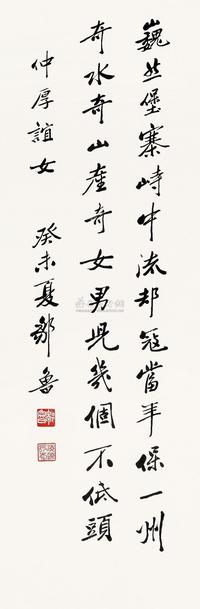 巍然堡寨峙中流却寇當年保一州
奇水奇山産奇女男児幾個不低頭
仲厚誼女
癸未夏鄒魯